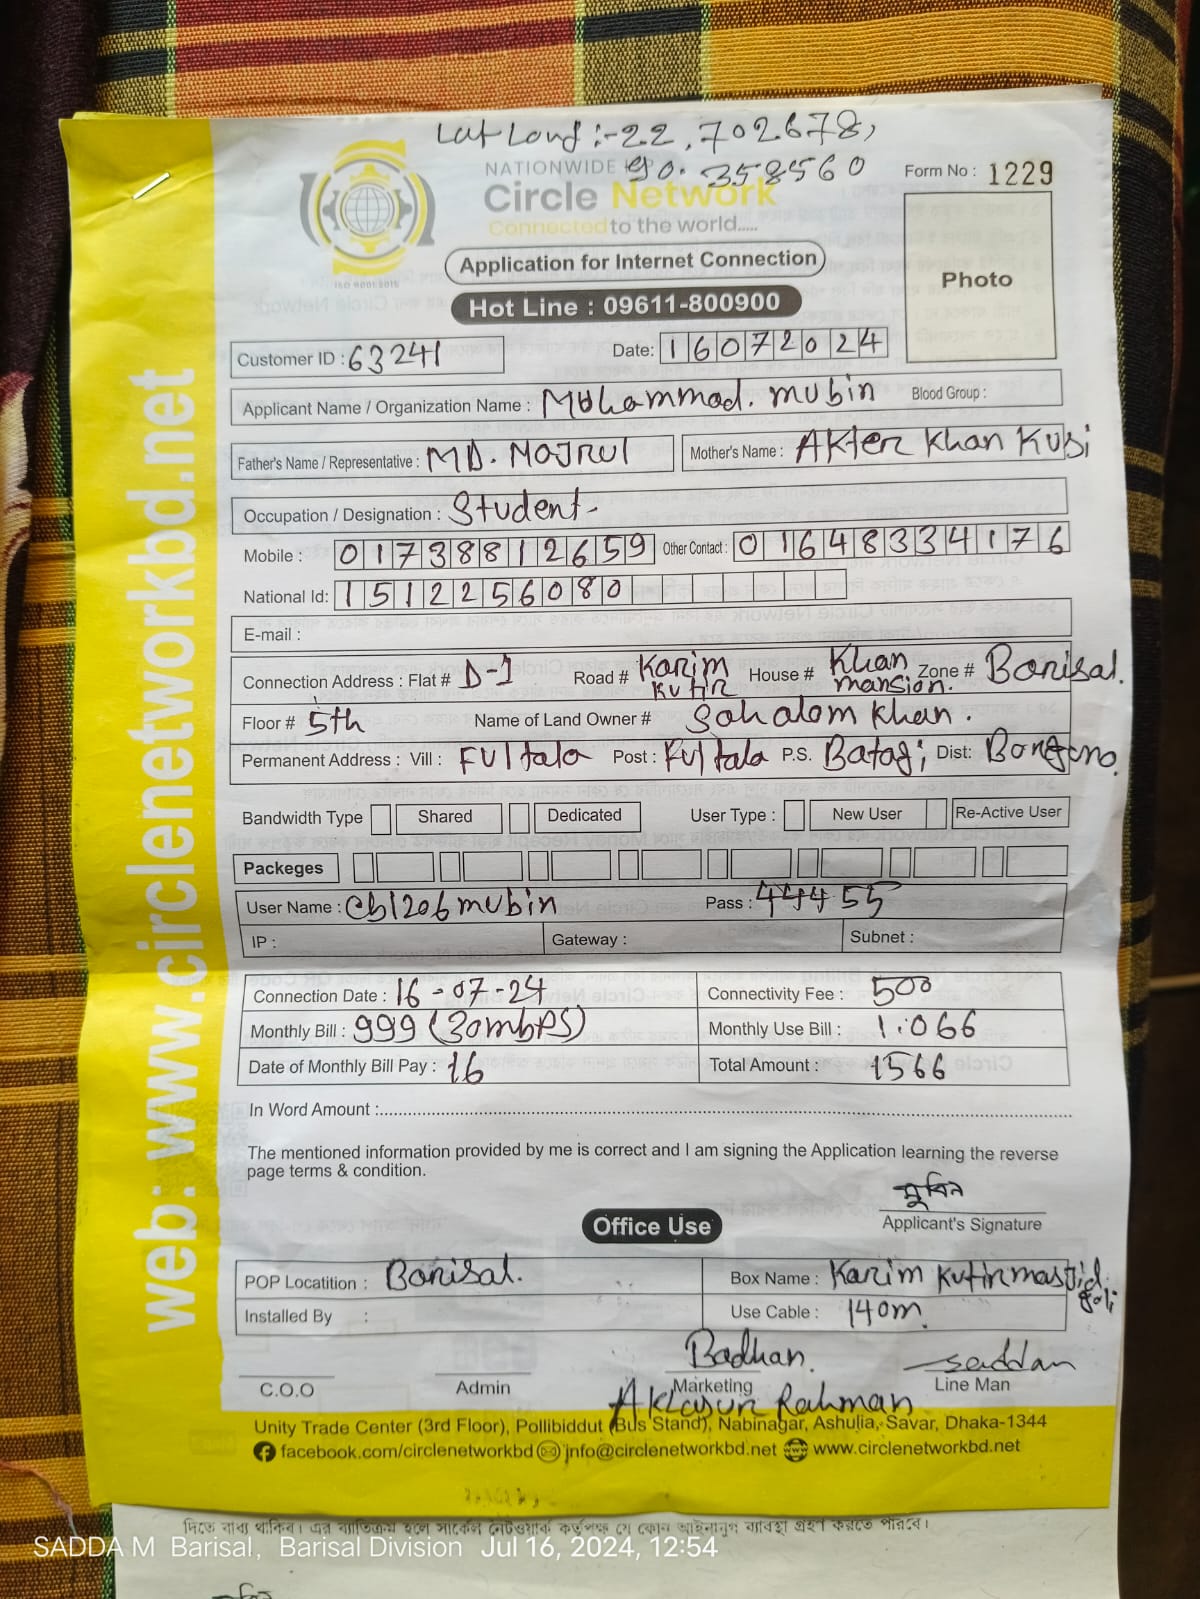 Lat Long :- 22.702678,
90.358560
NATIONWIDE ISP
Circle Network
Connected to the world.....
ISO 9001:2015
Form No : 1229
Photo
Application for Internet Connection
Hot Line : 09611-800900
Customer ID : 63241 Date: 16072024
Applicant Name / Organization Name : Mohammad. mubin Blood Group :
Father's Name / Representative : MD. NOJRUL Mother's Name : AKter Khan Kubi
Occupation / Designation : Student-
Mobile : 01738812659 Other Contact : 01648334176
National Id: 1512256080
E-mail :
Connection Address : Flat # D-1 Road # Karim Kutir House # Khan mansion. Zone # Borisal.
Floor # 5th Name of Land Owner # Sahalom Khan.
Permanent Address : Vill : FUltala Post : Fultala P.S. Batagi Dist: Borguna.
Bandwidth Type Shared Dedicated User Type : New User Re-Active User
Packeges
User Name : cb1206mubin Pass : 44455
IP : Gateway : Subnet :
Connection Date : 16-07-24 Connectivity Fee : 500
Monthly Bill : 999 (30mbPS) Monthly Use Bill : 1.066
Date of Monthly Bill Pay : 16 Total Amount : 1566
In Word Amount :..........
The mentioned information provided by me is correct and I am signing the Application learning the reverse
page terms & condition.
মুবিন
Applicant's Signature
Office Use
POP Locatition : Borisal. Box Name : Karim Kutir masjid goli
Installed By : Use Cable : 140m.
Badhan. Saddam
C.O.O Admin Marketing Line Man
Rahman
Unity Trade Center (3rd Floor), Pollibiddut (Bus Stand), Nabinagar, Ashulia, Savar, Dhaka-1344
facebook.com/circlenetworkbd info@circlenetworkbd.net www.circlenetworkbd.net
web: www.circlenetworkbd.net
দিতে বাধ্য থাকিব। এর ব্যতিক্রম হলে সার্কেল নেটওয়ার্ক কর্তৃপক্ষ যে কোন আইনানুগ ব্যবস্থা গ্রহণ করতে পারবে।
SADDA M Barisal, Barisal Division Jul 16, 2024, 12:54